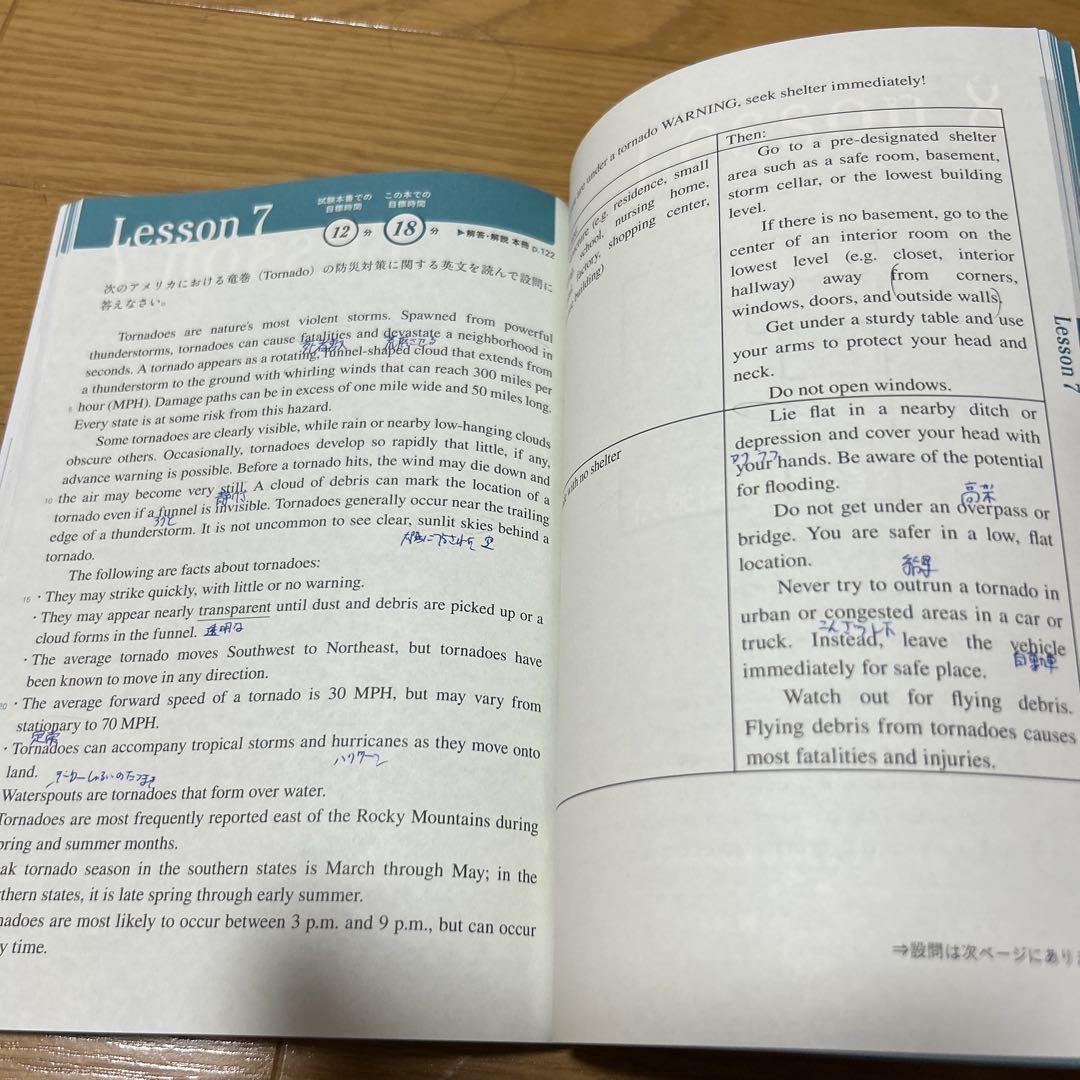 Lesson 7
試験本番での
目標時間
12 分
この本での
目標時間
18 分
▶解答・解説 本冊 p.122
次のアメリカにおける竜巻（Tornado）の防災対策に関する英文を読んで設問に
答えなさい。
Tornadoes are nature's most violent storms. Spawned from powerful
thunderstorms, tornadoes can cause fatalities and devastate a neighborhood in
seconds. A tornado appears as a rotating, funnel-shaped cloud that extends from
a thunderstorm to the ground with whirling winds that can reach 300 miles per
5 hour (MPH). Damage paths can be in excess of one mile wide and 50 miles long.
Every state is at some risk from this hazard.
Some tornadoes are clearly visible, while rain or nearby low-hanging clouds
obscure others. Occasionally, tornadoes develop so rapidly that little, if any,
advance warning is possible. Before a tornado hits, the wind may die down and
10 the air may become very still. A cloud of debris can mark the location of a
tornado even if a funnel is invisible. Tornadoes generally occur near the trailing
edge of a thunderstorm. It is not uncommon to see clear, sunlit skies behind a
tornado.
The following are facts about tornadoes:
15 ・They may strike quickly, with little or no warning.
・They may appear nearly transparent until dust and debris are picked up or a
cloud forms in the funnel.
透明な
・The average tornado moves Southwest to Northeast, but tornadoes have
been known to move in any direction.
20 ・The average forward speed of a tornado is 30 MPH, but may vary from
stationary to 70 MPH.
・Tornadoes can accompany tropical storms and hurricanes as they move onto
land.
ハリケーン
Waterspouts are tornadoes that form over water.
Tornadoes are most frequently reported east of the Rocky Mountains during
pring and summer months.
ak tornado season in the southern states is March through May; in the
thern states, it is late spring through early summer.
nadoes are most likely to occur between 3 p.m. and 9 p.m., but can occur
y time.
are under a tornado WARNING, seek shelter immediately!
(e.g. residence, small
school, nursing home,
factory, shopping center,
building)
Then:
Go to a pre-designated shelter
area such as a safe room, basement,
storm cellar, or the lowest building
level.
If there is no basement, go to the
center of an interior room on the
lowest level (e.g. closet, interior
hallway) away from corners,
windows, doors, and outside walls.
Get under a sturdy table and use
your arms to protect your head and
neck.
Do not open windows.
with no shelter
Lie flat in a nearby ditch or
depression and cover your head with
your hands. Be aware of the potential
for flooding.
高架
Do not get under an overpass or
bridge. You are safer in a low, flat
location.
Never try to outrun a tornado in
urban or congested areas in a car or
truck. Instead, leave the vehicle
自動車
immediately for safe place.
Watch out for flying debris.
Flying debris from tornadoes causes
most fatalities and injuries.
Lesson 7
⇒設問は次ページにあり